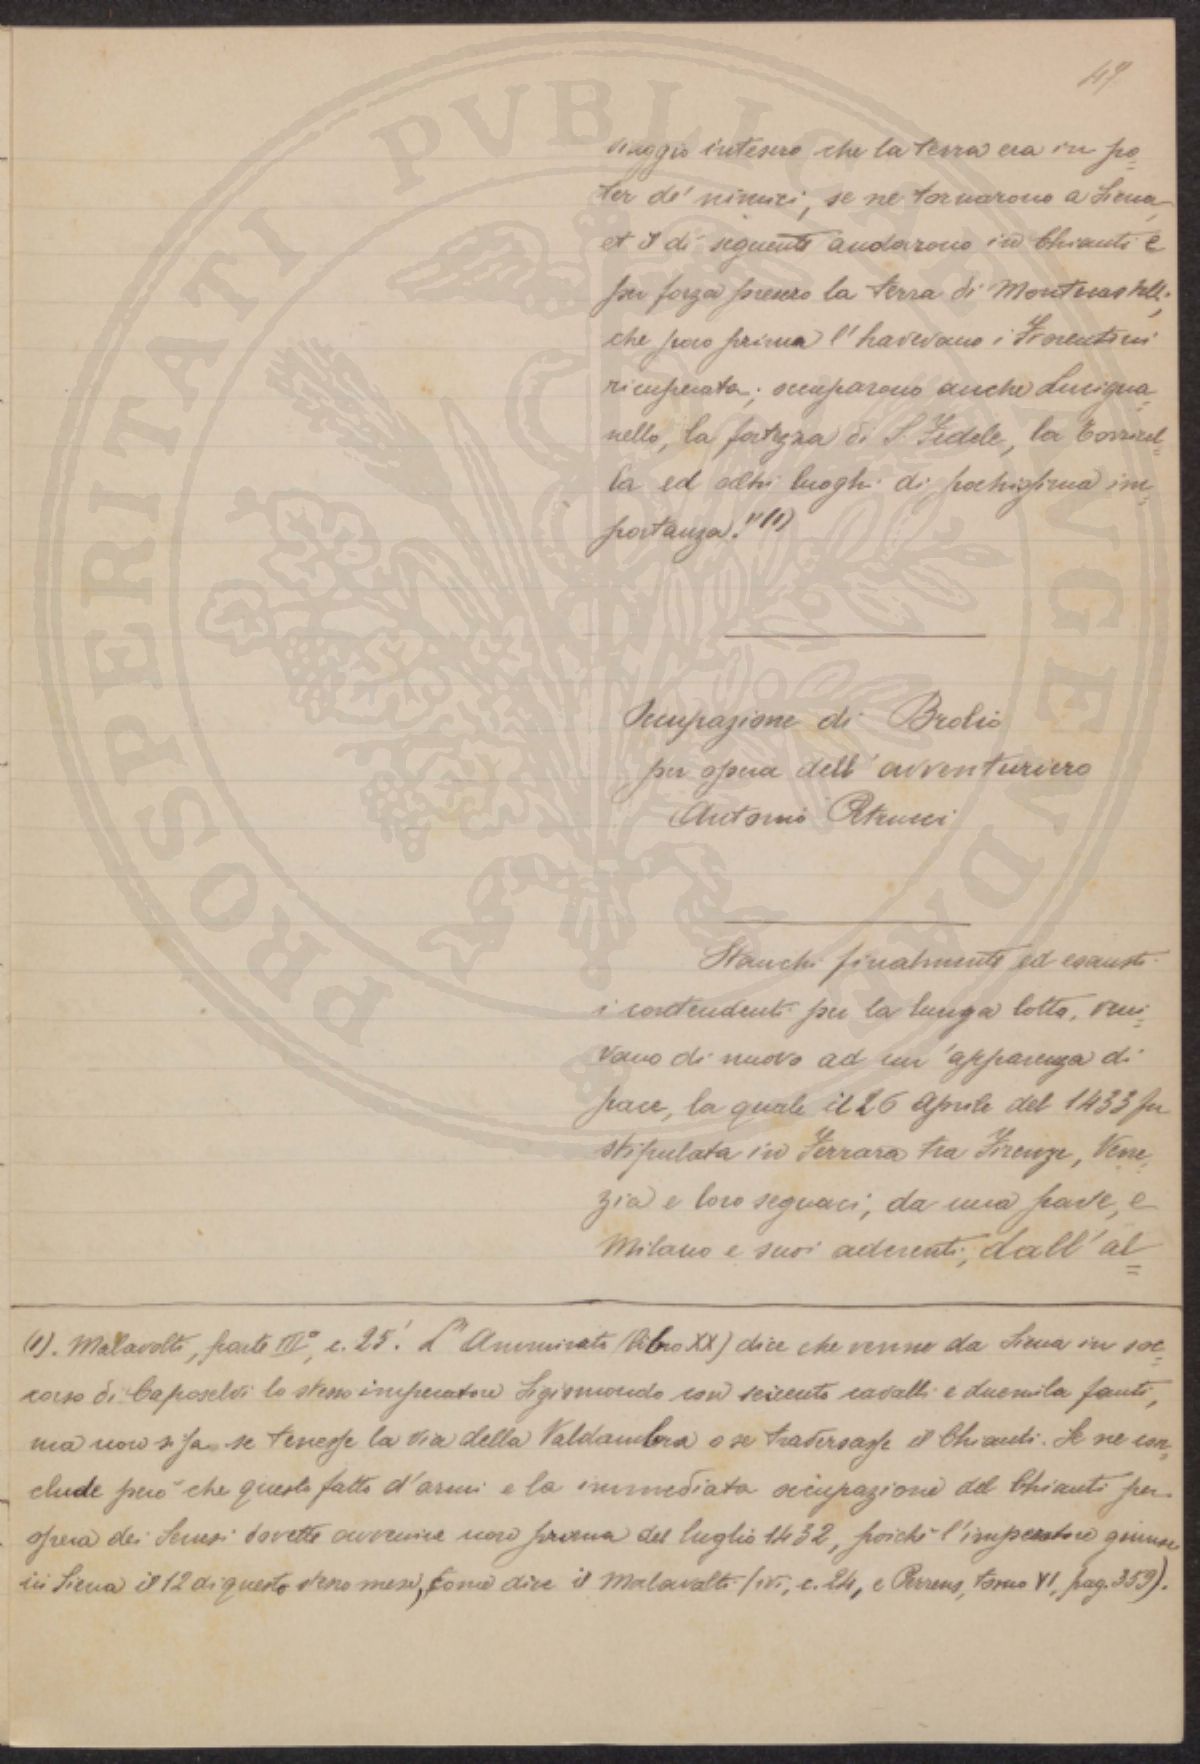 47
viaggio intesero che la terra era in po=
ter de' nimici, se ne tornarono a Siena,
et il dì seguente andarono in Chianti e
per forza presero la terra di Montecastelli,
che poco prima l'havevano i Fiorentini
ricuperata; occuparono anche Lucigna=
nello, la fortezza di S. Fedele, la Torricel=
la ed altri luoghi di pochissima im=
portanza." (1)
Occupazione di Brolio
per opera dell'avventuriero
Antonio Petrucci
Stanchi finalmente ed esausti
i contendenti per la lunga lotta, veni=
vano di nuovo ad un'apparenza di
pace, la quale il 26 Aprile del 1433 fu
stipulata in Ferrara tra Firenze, Vene=
zia e loro seguaci, da una parte, e
Milano e suoi aderenti, dall'al=
(1). Malavolti, parte IIIª, c. 25. L'Ammirato (Libro XX) dice che venne da Siena in soc=
corso di Caposelvi lo stesso imperatore Sigismondo con seicento cavalli e duemila fanti,
ma non si sa se tenesse la via della Valdambra o se traversasse il Chianti. Se ne con=
clude però che questo fatto d'armi e la immediata occupazione del Chianti per
opera dei Senesi dovette avvenire non prima del luglio 1432, poichè l'imperatore giunse
in Siena il 12 di questo stesso mese, come dice il Malavolti (ivi, c. 24, e Perrens, tomo VI, pag. 359).
PROSPERITATI PVBLICAE AVGENDAE